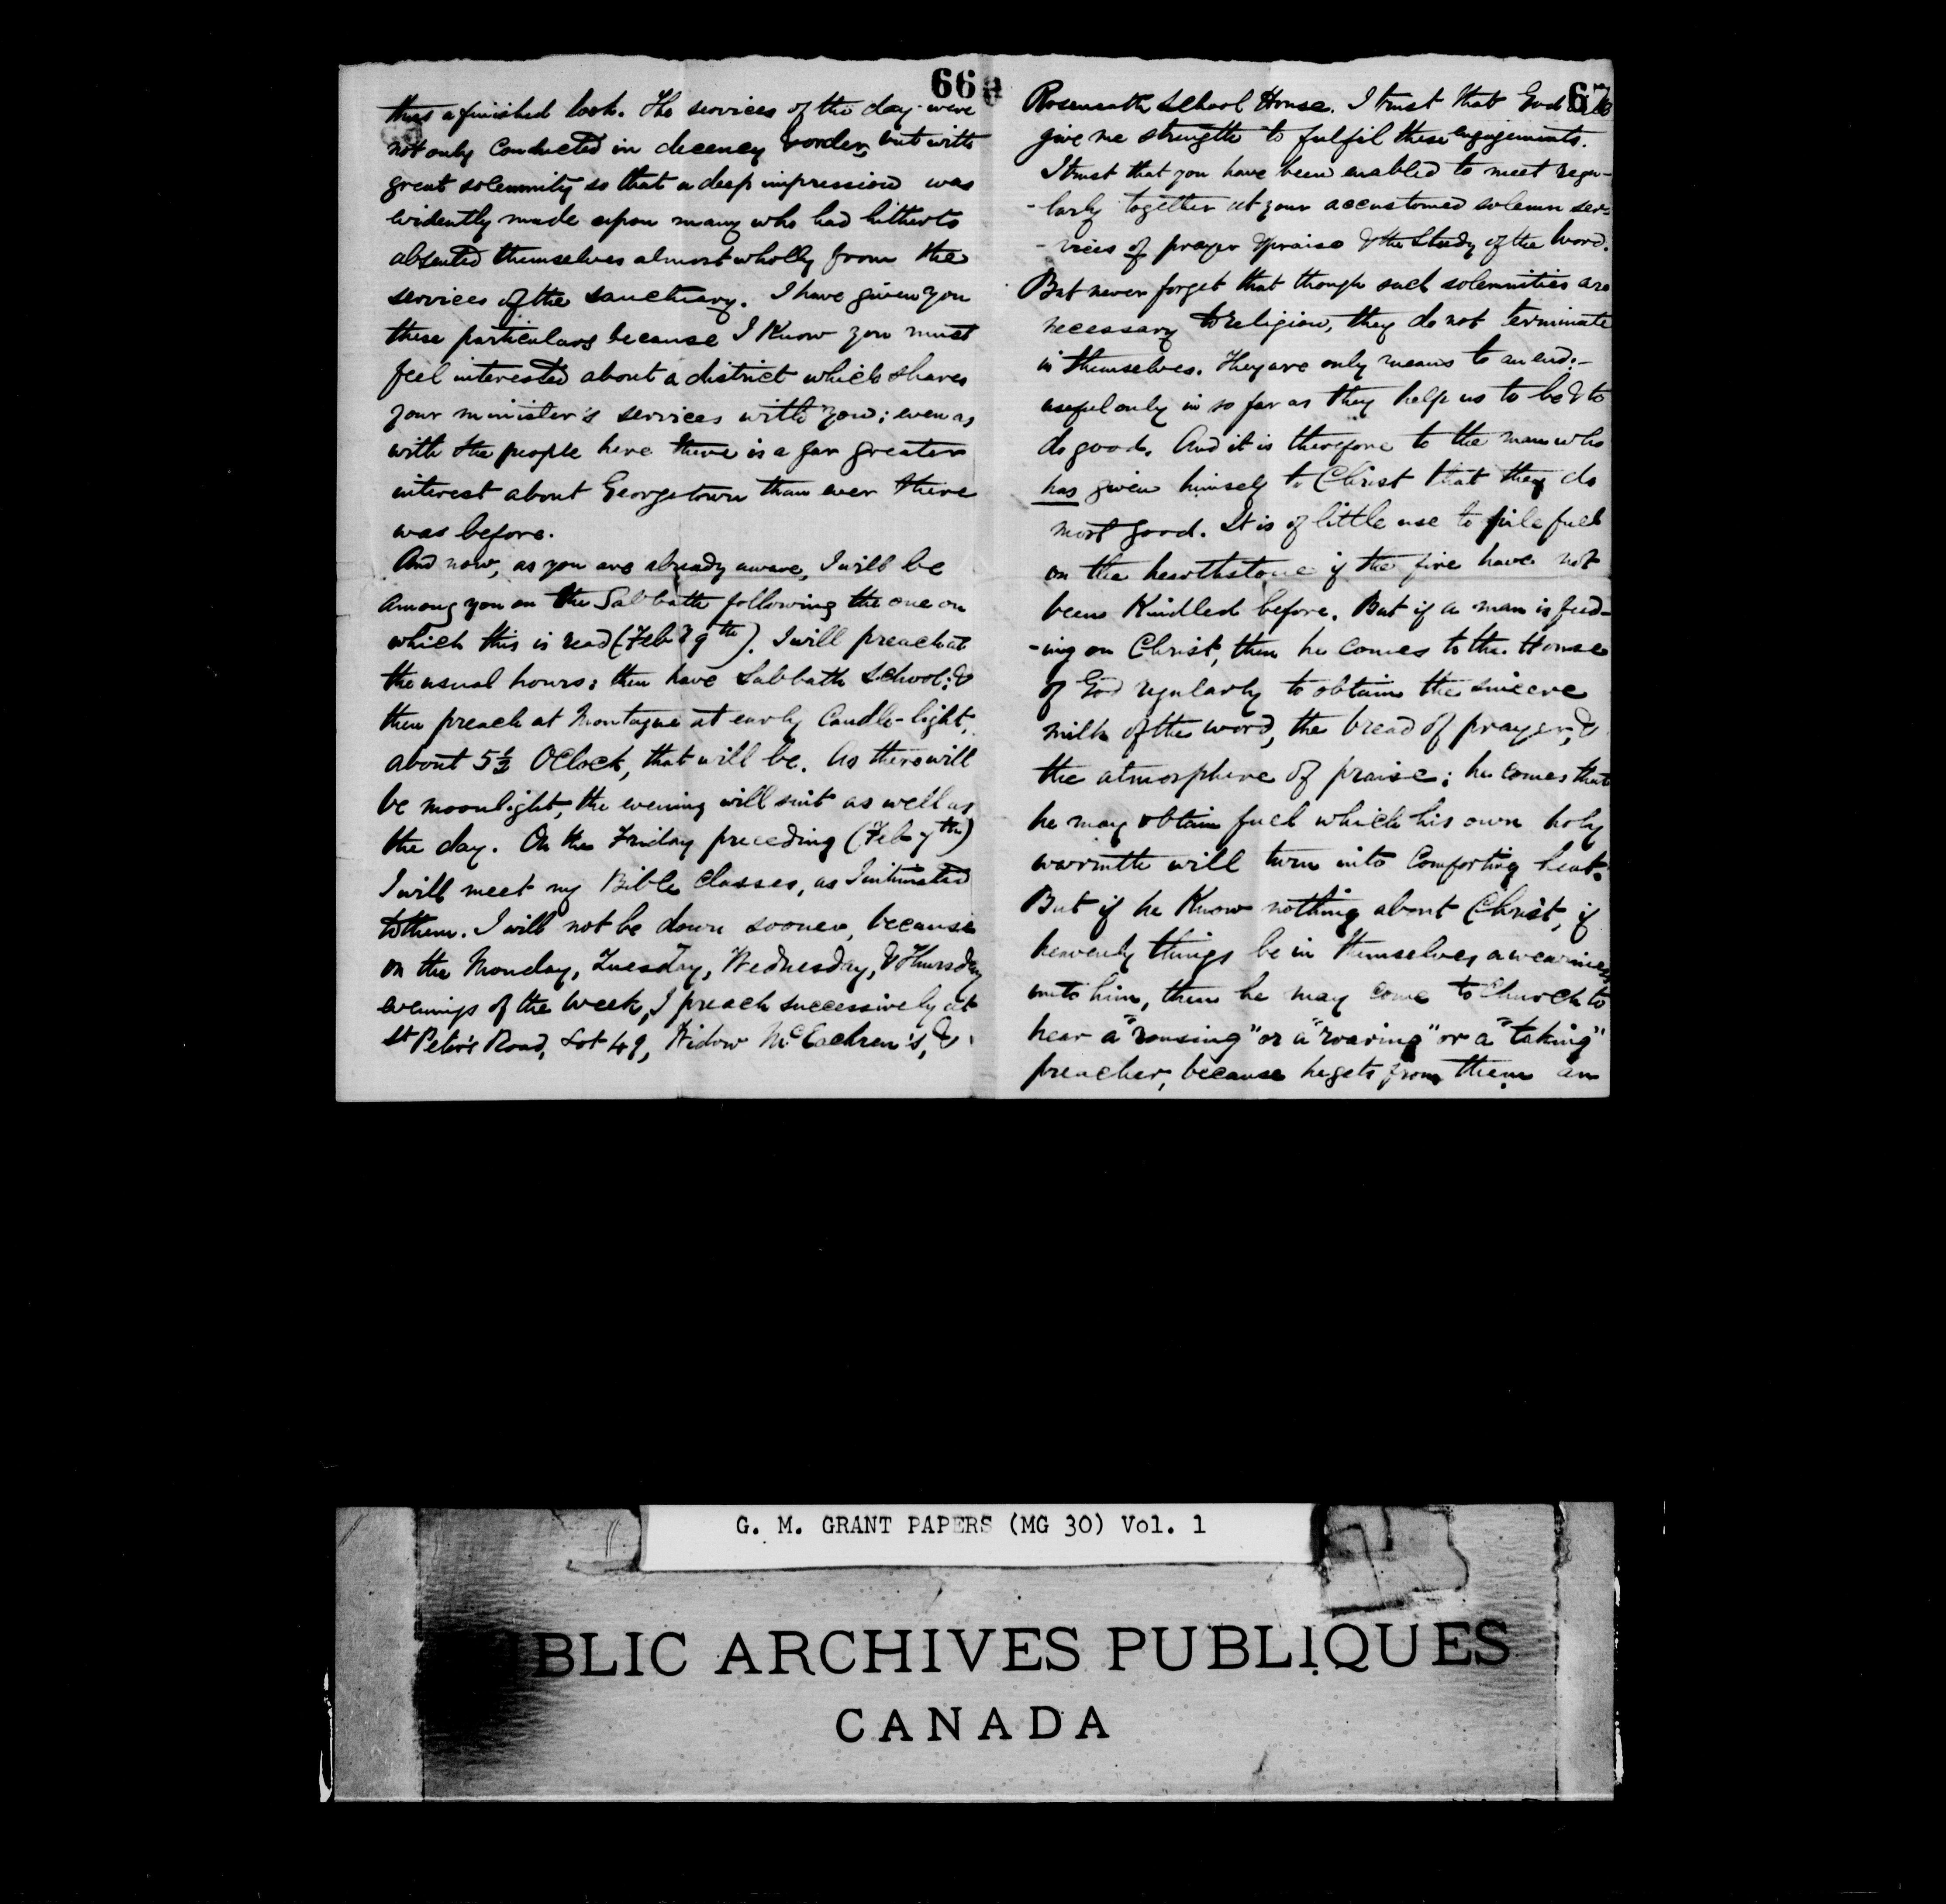 66
thus a finished look. The services of the day were
not only conducted in decency & order, but with
great solemnity so that a deep impression was
evidently made upon many who had hitherto
absented themselves almost wholly from the
services of the sanctuary. I have given you
these particulars because I know you must
feel interested about a district which shares
your minister's services with you; even as
with the people here there is a far greater
interest about Georgetown than ever there
was before.
And now, as you are already aware, I will be
among you on the Sabbath following the one on
which this is read (Feby 9th). I will preach at
the usual hours; then have Sabbath School; &
then preach at Montague at early Candle-light,
about 5½ OClock, that will be. As there will
be moonlight, the evening will suit as well as
the day. On the Friday preceding (Feb 7th)
I will meet my Bible Classes, as I intimated
to them. I will not be down sooner, because
on the Monday, Tuesday, Wednesday, & Thursday
evenings of the week, I preach successively at
St Peter's Road, Lot 49, Widow McEachren's, &
67
Roseneath School House. I trust that God will
give me strength to fulfil these engagements.
I trust that you have been enabled to meet regu-
-larly together at your accustomed solemn ser-
-vices of prayer & praise & the Study of the Word.
But never forget that though such solemnities are
necessary to religion, they do not terminate
in themselves. They are only means to an end:-
useful only in so far as they help us to be & to
do good. And it is therefore to the man who
has given himself to Christ that they do
most good. It is of little use to pile fuel
on the hearthstone if the fire have not
been Kindled before. But if a man is feed-
-ing on Christ, then he comes to the House
of God regularly to obtain the sincere
milk of the word, the bread of prayer, &
the atmosphere of praise; he comes that
he may obtain fuel which his own holy
warmth will turn into Comforting heat.
But if he Know nothing about Christ, if
heavenly things be in themselves a weariness
unto him, then he may come to Church to
hear a "rousing" or a "roaring" or a "taking"
preacher, because he gets from them an
G. M. GRANT PAPERS (MG 30) Vol. 1
BLIC ARCHIVES PUBLIQUES
CANADA